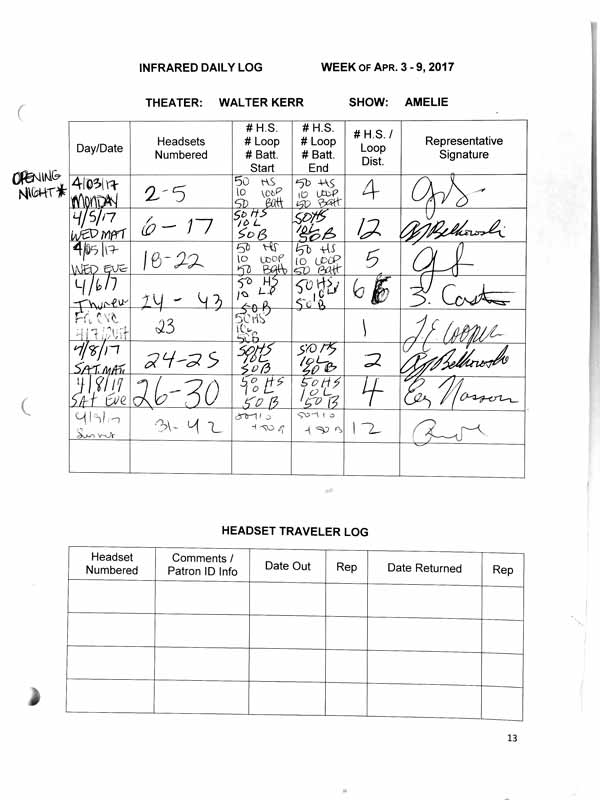 INFRARED DAILY LOG WEEK OF APR. 3 - 9, 2017
THEATER: WALTER KERR SHOW: AMELIE
Day/Date
Headsets
Numbered
# H.S.
# Loop
# Batt.
Start
# H.S.
# Loop
# Batt.
End
# H.S. /
Loop
Dist.
Representative
Signature
OPENING
NIGHT*
4/03/17
MONDAY
2-5
50 HS
10 LOOP
50 Batt
50 HS
10 LOOP
50 Batt
4
4/5/17
WED MAT
6-17
50HS
10L
50B
50HS
10L
50B
12
AJ Belkowski
4/05/17
WED EVE
18-22
50 HS
10 LOOP
50 Batt
50 HS
10 LOOP
50 Batt
5
4/6/17
24 - 43
50 HS
10 LP
50B
50HS
50B
Fri eve
23
50HS
1
J E Cooper
4/8/17
SAT. MAT
24-25
50HS
10L
50B
50HS
10L
50B
2
AJ Belkowski
4/8/17
SAT EVE
26-30
50HS
10L
50B
50HS
10L
50B
4
31-42
12
HEADSET TRAVELER LOG
Headset
Numbered
Comments /
Patron ID Info
Date Out
Rep
Date Returned
Rep
13